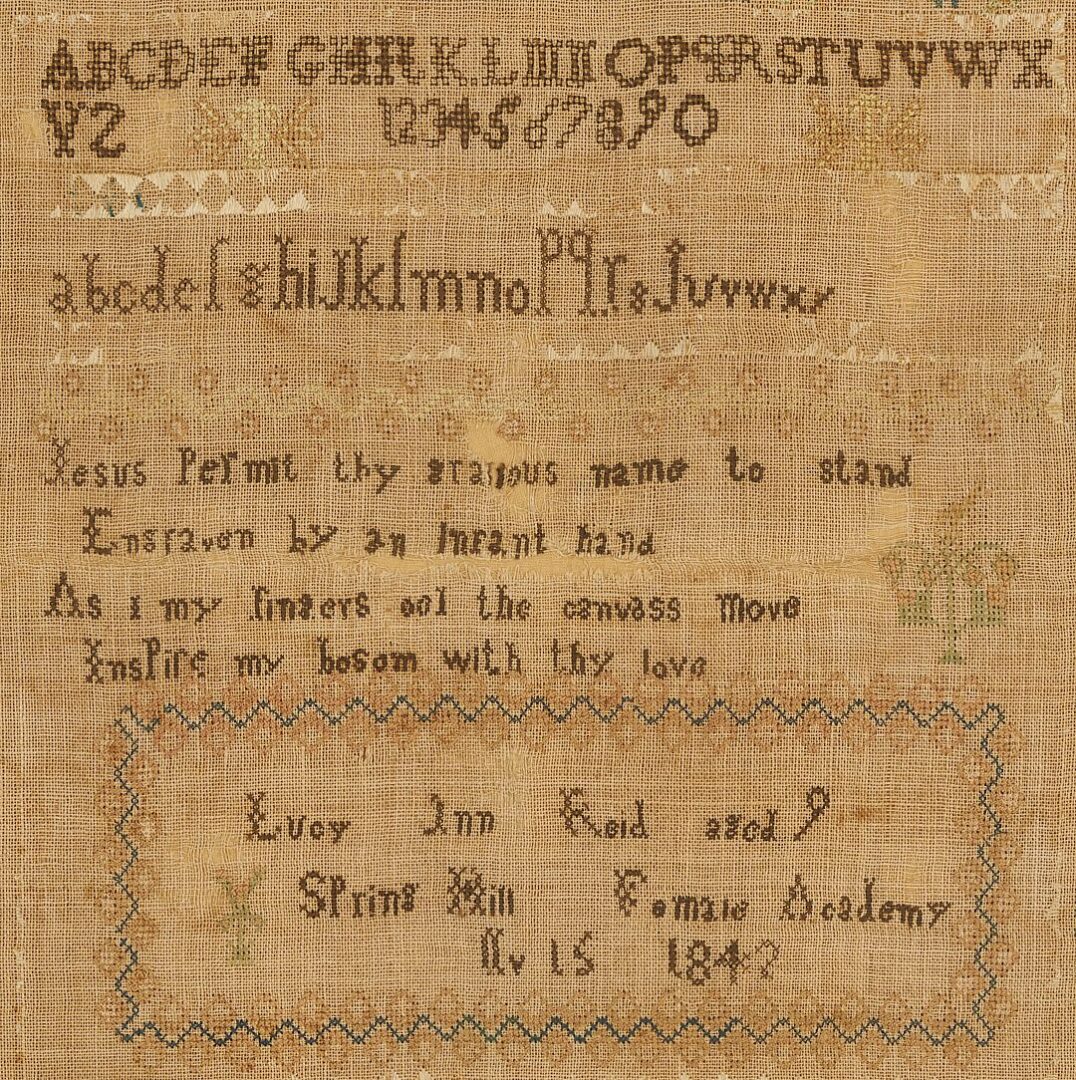 ABCDEF GHIKLMNOPQRSTUVWX
YZ 1234567890
abcdef ghijklmnopqrstuvwxy
Jesus Permit thy gracious name to stand
Engraven by an Infant hand
As i my fingers oel the canvass move
Inspire my bosom with thy love
Lucy Ann Reid aged 9
Spring Hill Female Academy
Nv 15 184